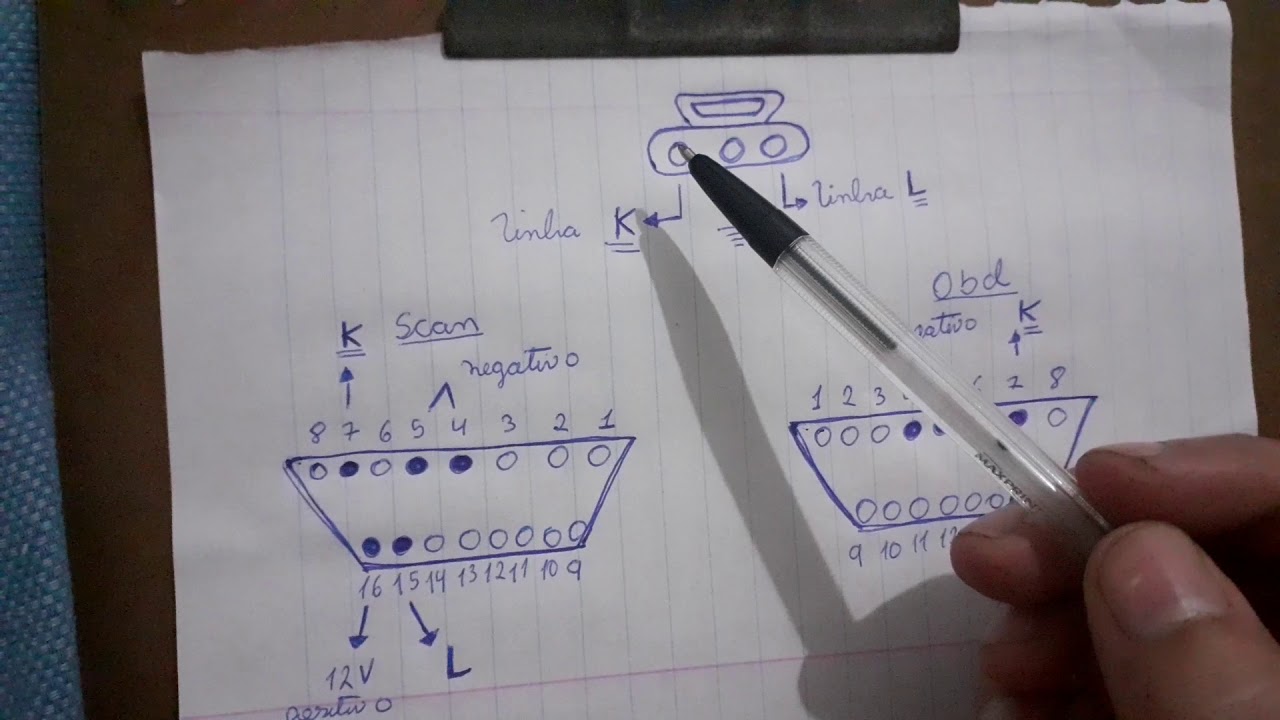 Linha K
Linha L
K Scan
negativo
8 7 6 5 4 3 2 1
16 15 14 13 12 11 10 9
12V L
positivo
Obd
K
1 2 3 7 8
9 10 11